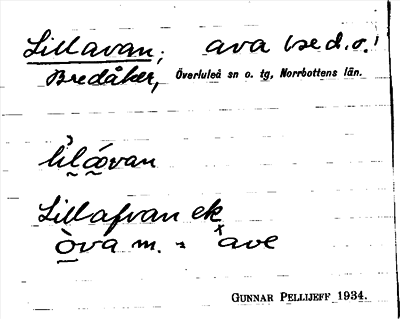 Lillavan; ava (se d.o.)
Bredåker, Överluleå sn o. tg, Norrbottens län.
lìlǻvan
Lillafvan ek
òva m. = ˣave
GUNNAR PELLIJEFF 1934.